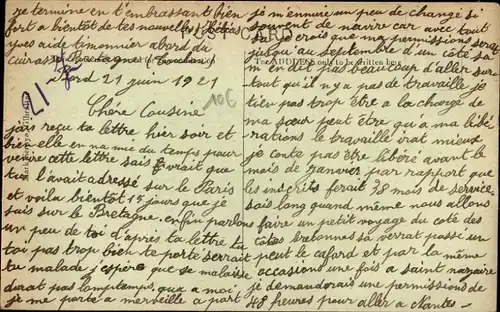 je termine en t'embrassant bien
fort a bientôt de tes nouvelles
Yves aide timonnier abord du
cuirassé Bretagne (Toulon)
abord 21 juin 1921
Chére Cousine
jais reçu ta lettre hier soir et
bien elle en na mie du temps pour
venire cette lettre sait vrait que
tu l'avait adressé sur le Paris
et voila bientôt 15 jours que je
sais sur le Bretagne. enfin parlons
un peu de toi d'après ta lettre tu
toi pas trop bien te porte serrait
tu malade j'espère que se malaise
durat pas lomptemps, qua a moi
je me porte a merveille a part
je m'ennuire un peu de changé si
souvent de navire car avec tout
sa je crois que ma permissions serat
jusqu'au septembre d'un côté sa
m'en dit pas beaucoup d'aller sur
tout qu'il n'y a pas de travaille je
tien pas trop être a la charge de
ma sœur peut être qu'a ma libé
rations le travaille irat mieux
je conte pas être libéré avant le
mois de janvier par rapport que
les inscrits ferait 38 mois de service
sais long quand même nous allons
faire un petit voyage du coté des
côtes bretonnes sa verrat passé un
peut le cafard et par la même
occasions une fois a saint nazaire
je demanderais une permissions de
48 heures pour aller a Nantes -
POST CARD
The ADDRESS only to be written here
21
10€